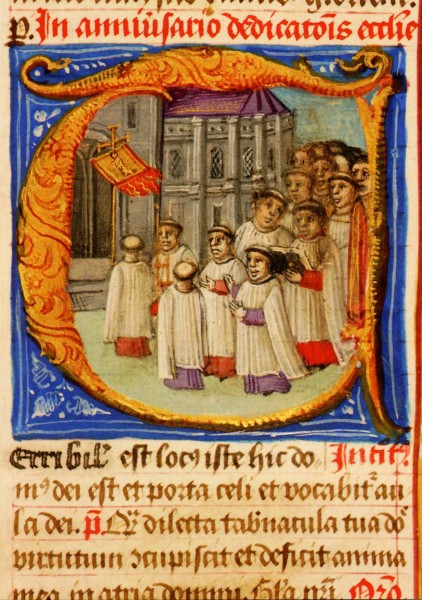 P. In anniu͂sario dedicatoi̅s eccl̅ie
erribil' est locꝰ iste hic do Intitꝰ
mꝰ dei est et porta celi et vocabit͛ au
la dei. p̅ Qͣ dilecta tab̅nacula tua do͛
virtutum ↄcupiscit et deficit anima
mea in atria domini. Gl̅a pr̅i. Oro̅